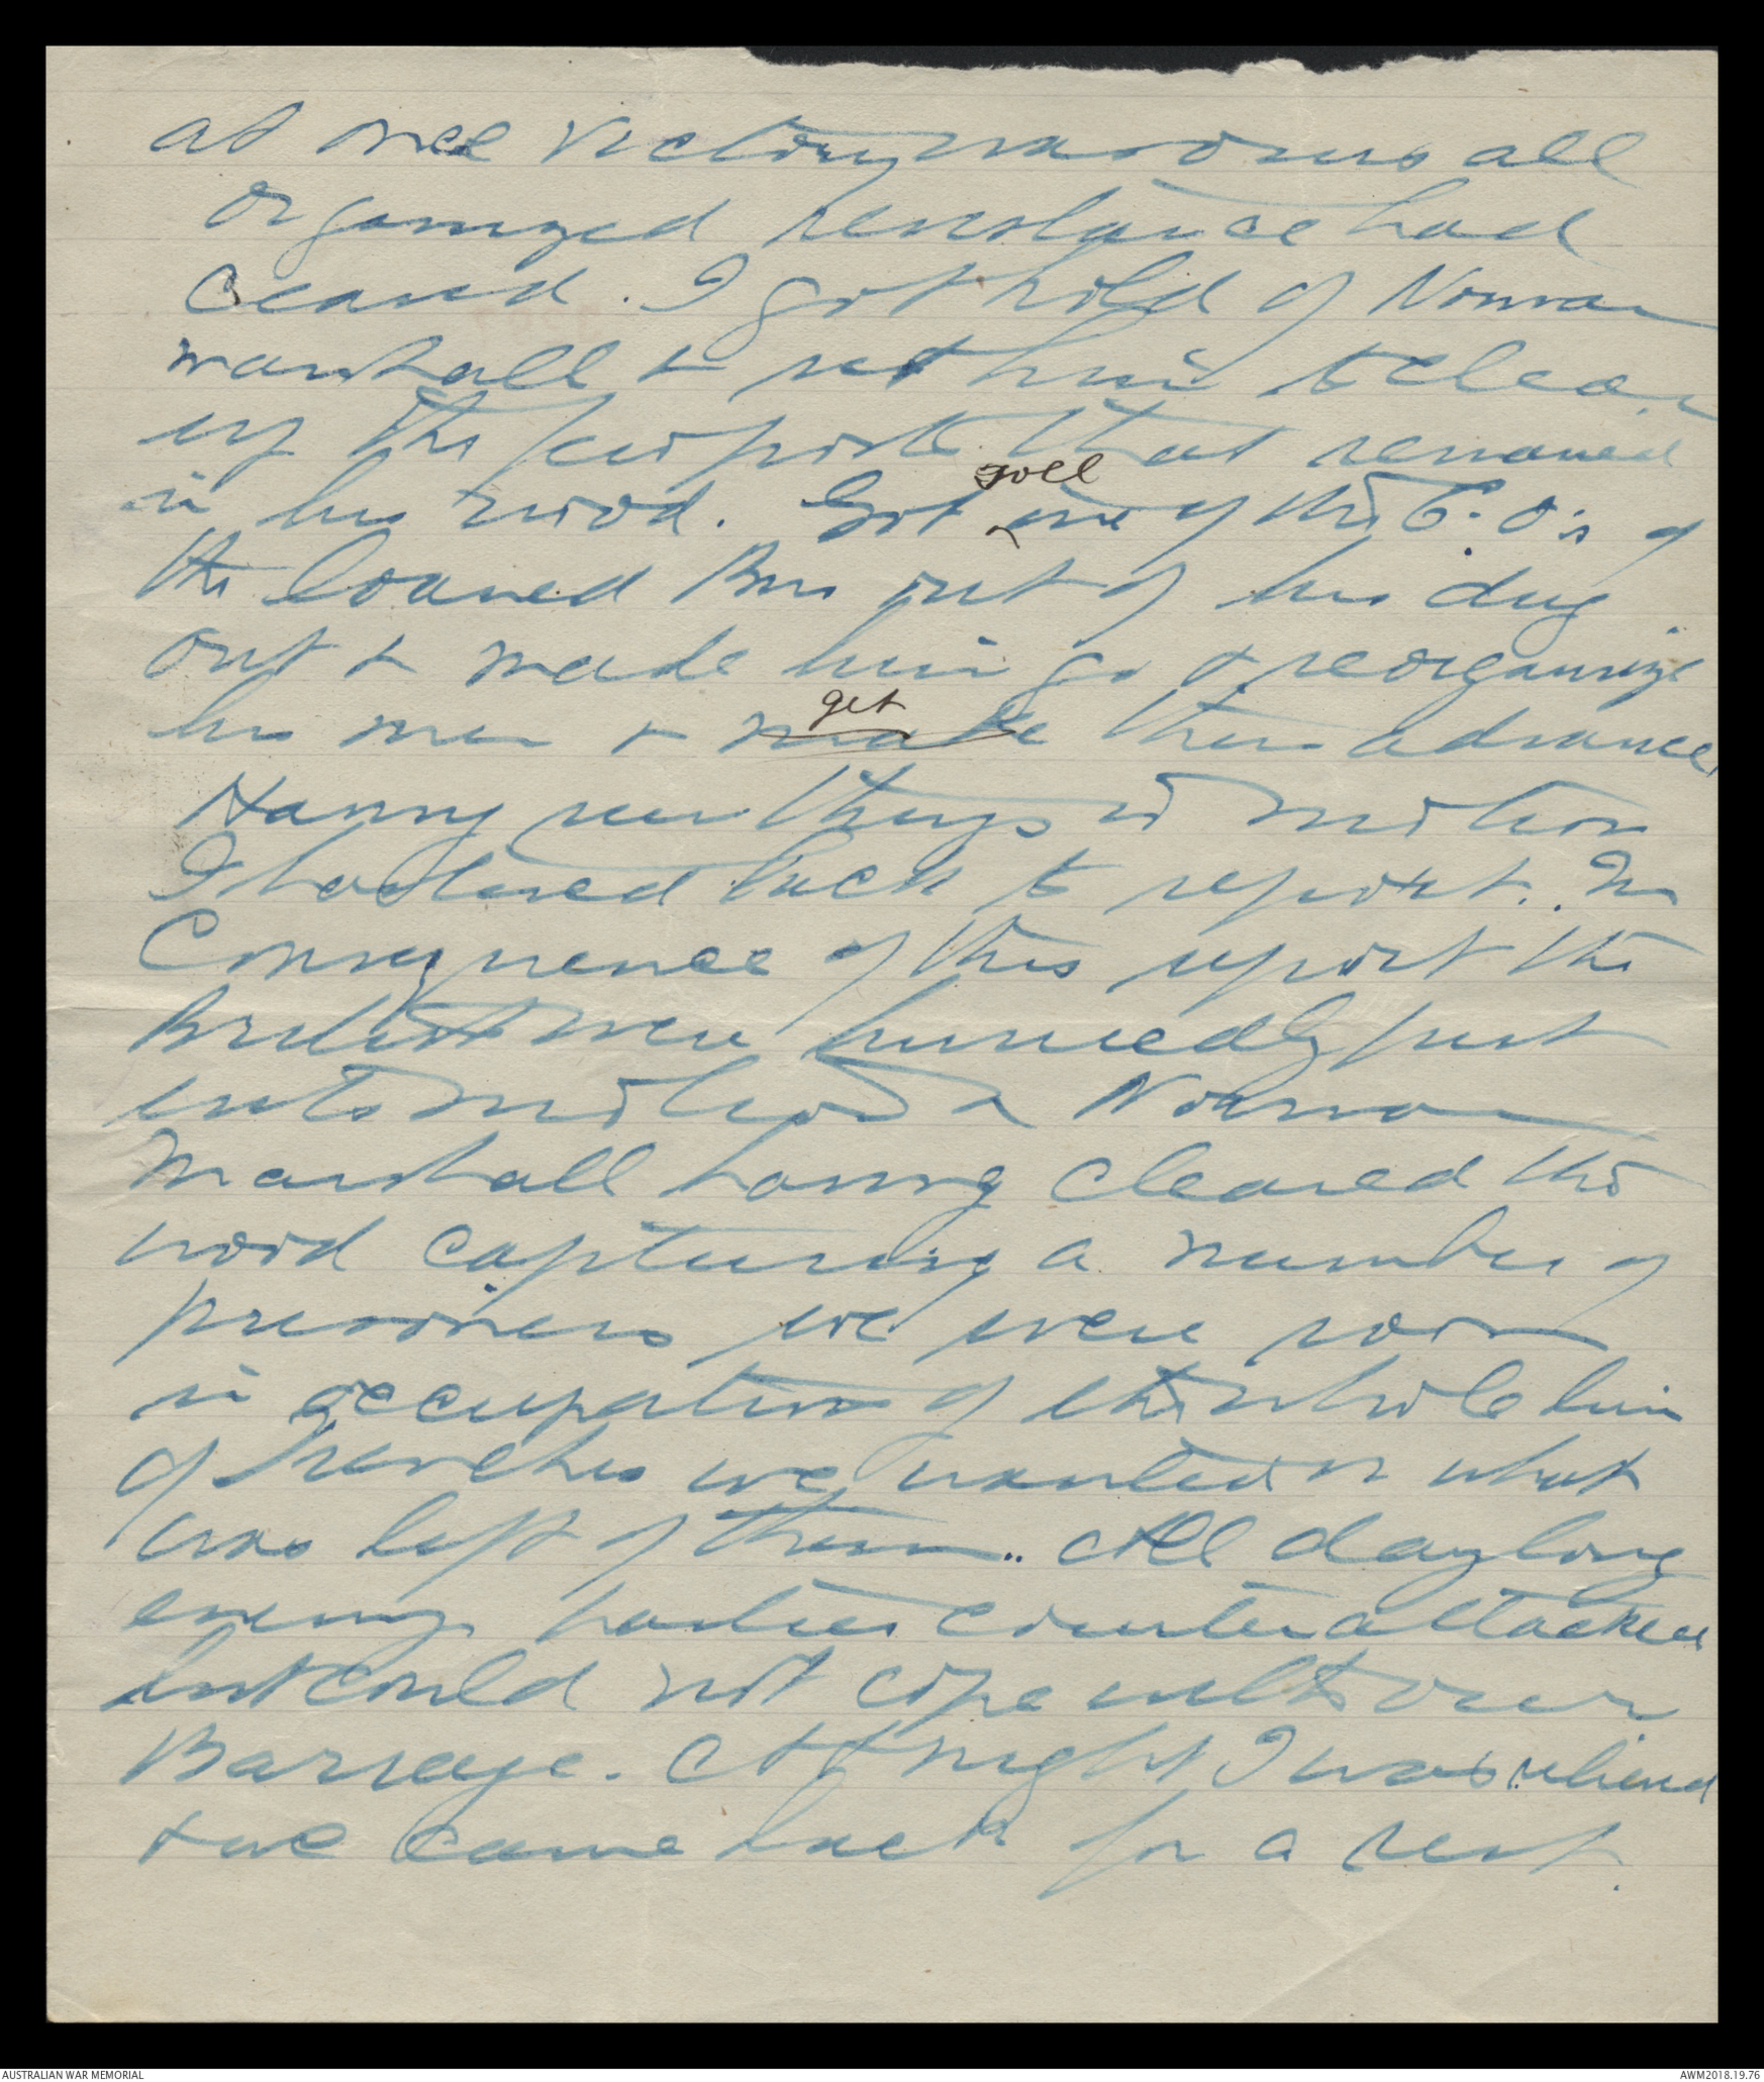 at once victory was ours all
organized resistance had
ceased. I got hold of Norman
Marshall & set him to clear
up the few posts that remained
in his wood. Got ^ one of the C.O's of
the loaned Bns out of his dug
out & made him go & reorganize
his men & make get them advance.
Having seen things in motion
I hastened back to report. In
Consequence of this report the
British were hurriedly put
into motion & Norman
Marshall having cleared the
wood capturing a number of
prisoners we were soon
in occupation of the whole line
of trenches we wanted or what
was left of them.. All day long
enemy parties counterattacked
but could not cope with our
Barrage. At night I was relieved
& we came back for a rest.
AUSTRALIAN WAR MEMORIAL
AWM2018.19.76